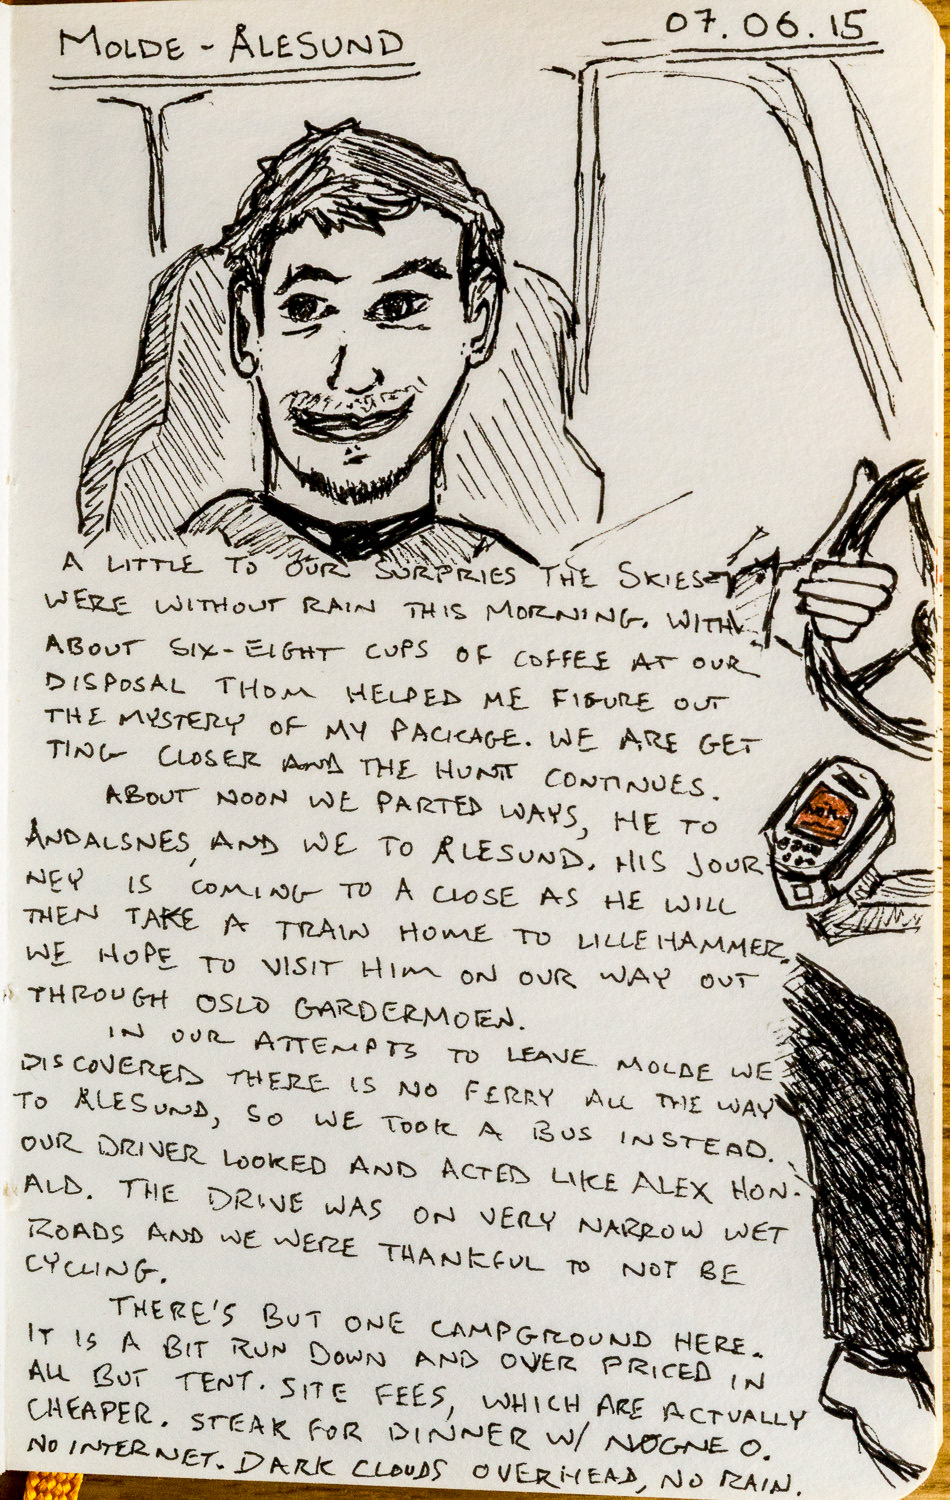 MOLDE - ÅLESUND
07.06.15
A LITTLE TO OUR SURPRIES THE SKIES
WERE WITHOUT RAIN THIS MORNING. WITH
ABOUT SIX-EIGHT CUPS OF COFFEE AT OUR
DISPOSAL THOM HELPED ME FIGURE OUT
THE MYSTERY OF MY PACKAGE. WE ARE GET
TING CLOSER AND THE HUNT CONTINUES.
ABOUT NOON WE PARTED WAYS, HE TO
ÅNDALSNES, AND WE TO ÅLESUND. HIS JOUR-
NEY IS COMING TO A CLOSE AS HE WILL
THEN TAKE A TRAIN HOME TO LILLEHAMMER.
WE HOPE TO VISIT HIM ON OUR WAY OUT
THROUGH OSLO GARDERMOEN.
IN OUR ATTEMPTS TO LEAVE MOLDE WE
DISCOVERED THERE IS NO FERRY ALL THE WAY
TO ÅLESUND, SO WE TOOK A BUS INSTEAD.
OUR DRIVER LOOKED AND ACTED LIKE ALEX HON-
ALD. THE DRIVE WAS ON VERY NARROW WET
ROADS AND WE WERE THANKFUL TO NOT BE
CYCLING.
THERE'S BUT ONE CAMPGROUND HERE.
IT IS A BIT RUN DOWN AND OVER PRICED IN
ALL BUT TENT. SITE FEES, WHICH ARE ACTUALLY
CHEAPER. STEAK FOR DINNER W/ NØGNE O.
NO INTERNET. DARK CLOUDS OVERHEAD, NO RAIN.